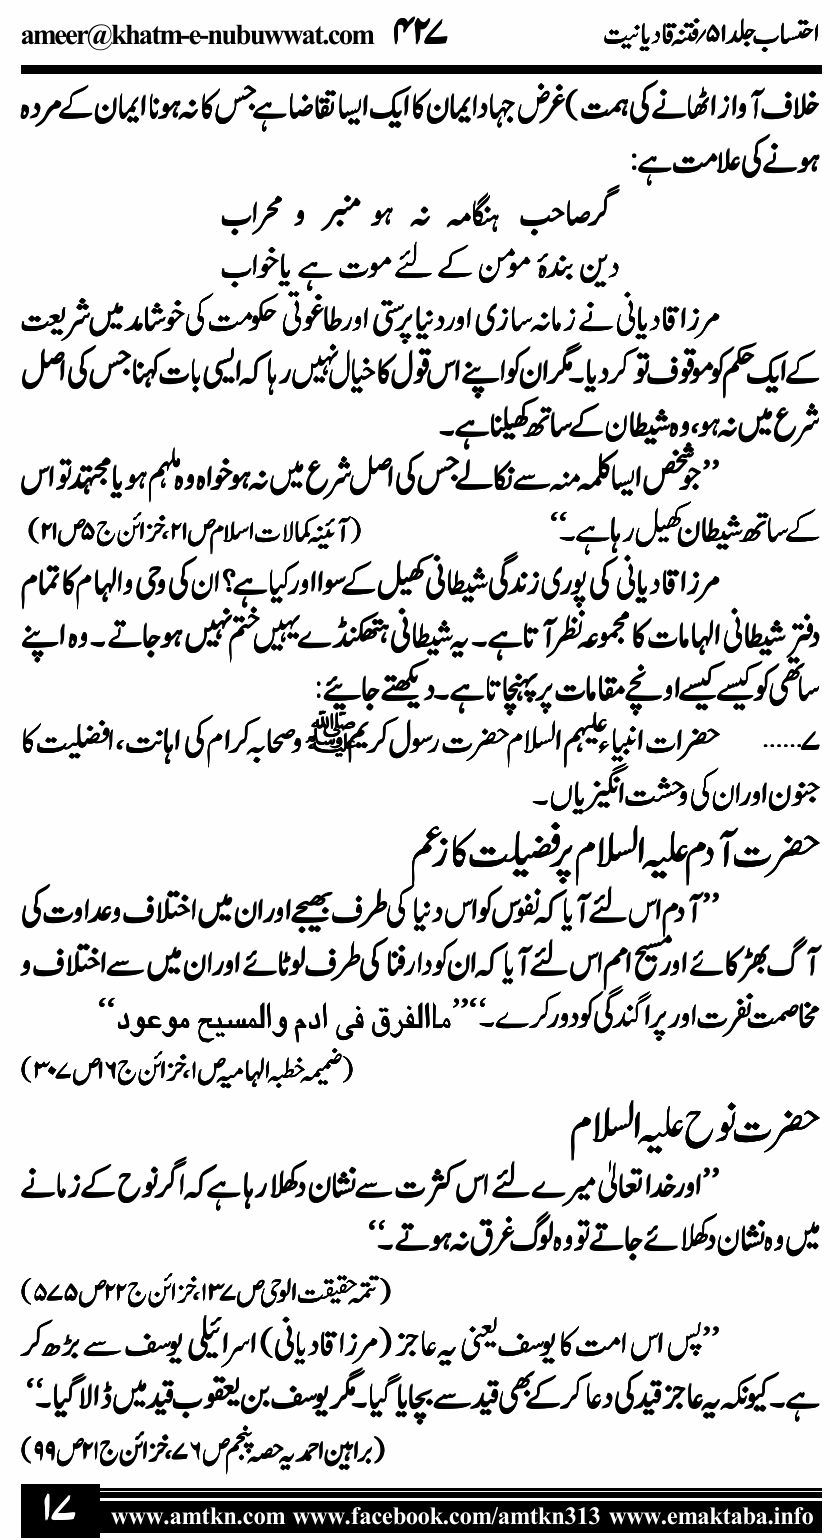 احتساب جلد ۵۱/ فتنہ قادیانیت ۴۲۷ ameer@khatm-e-nubuwwat.com
خلاف آواز اٹھانے کی ہمت) غرض جہاد ایمان کا ایک ایسا تقاضا ہے جس کا نہ ہونا ایمان کے مردہ
ہونے کی علامت ہے:
گر صاحب ہنگامہ نہ ہو منبر و محراب
دین بندۂ مومن کے لئے موت ہے یا خواب
مرزا قادیانی نے زمانہ سازی اور دنیا پرستی اور طاغوتی حکومت کی خوشامد میں شریعت
کے ایک حکم کو موقوف تو کر دیا۔ مگر ان کو اپنے اس قول کا خیال نہیں رہا کہ ایسی بات کہنا جس کی اصل
شرع میں نہ ہو، وہ شیطان کے ساتھ کھیلنا ہے۔
’’جو شخص ایسا کلمہ منہ سے نکالے جس کی اصل شرع میں نہ ہو خواہ وہ ملہم ہو یا مجتہد تو اس
کے ساتھ شیطان کھیل رہا ہے۔‘‘ (آئینہ کمالات اسلام ص۲۱، خزائن ج۵ ص۲۱)
مرزا قادیانی کی پوری زندگی شیطانی کھیل کے سوا اور کیا ہے؟ ان کی وحی و الہام کا تمام
دفتر شیطانی الہامات کا مجموعہ نظر آتا ہے۔ یہ شیطانی ہتھکنڈے یہیں ختم نہیں ہو جاتے۔ وہ اپنے
ساتھی کو کیسے کیسے اونچے مقامات پر پہنچاتا ہے۔ دیکھتے جائیے:
۷...... حضرات انبیاء علیہم السلام حضرت رسول کریم ﷺ و صحابہ کرام کی اہانت، افضلیت کا
جنون اور ان کی وحشت انگیزیاں۔
حضرت آدم علیہ السلام پر فضیلت کا زعم
’’آدم اس لئے آیا کہ نفوس کو اس دنیا کی طرف بھیجے اور ان میں اختلاف و عداوت کی
آگ بھڑکائے اور مسیح امم اس لئے آیا کہ ان کو دار فنا کی طرف لوٹائے اور ان میں سے اختلاف و
مخاصمت نفرت اور پراگندگی کو دور کرے۔‘‘ ’’ماالفرق فی ادم والمسیح موعود‘‘
(ضمیمہ خطبہ الہامیہ ص۱، خزائن ج۱۶ ص۳۰۷)
حضرت نوح علیہ السلام
’’اور خدا تعالیٰ میرے لئے اس کثرت سے نشان دکھلا رہا ہے کہ اگر نوح کے زمانے
میں وہ نشان دکھلائے جاتے تو وہ لوگ غرق نہ ہوتے۔‘‘
(تتمہ حقیقت الوحی ص۱۳۷، خزائن ج۲۲ ص۵۷۵)
’’پس اس امت کا یوسف یعنی یہ عاجز (مرزا قادیانی) اسرائیلی یوسف سے بڑھ کر
ہے۔ کیونکہ یہ عاجز قید کی دعا کر کے بھی قید سے بچایا گیا۔ مگر یوسف بن یعقوب قید میں ڈالا گیا۔‘‘
(براہین احمدیہ حصہ پنجم ص۷۶، خزائن ج۲۱ ص۹۹)
۱۷ www.amtkn.com www.facebook.com/amtkn313 www.emaktaba.info